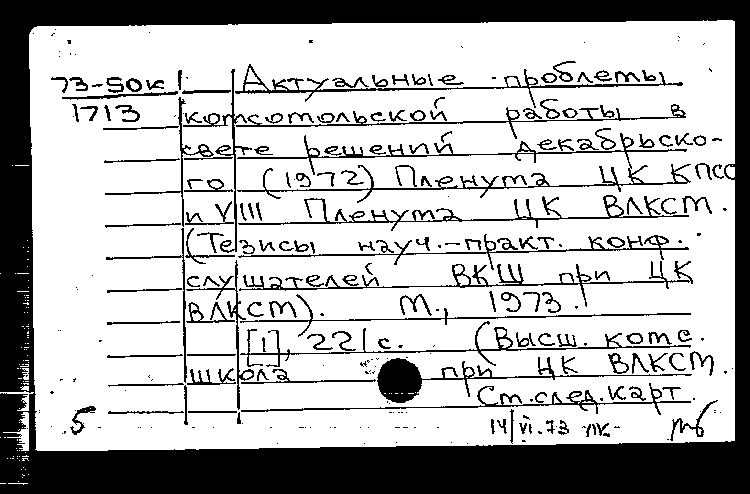 73-50к Актуальные проблемы
1713 комсомольской работы в
свете решений декабрьско-
го (1972) Пленума ЦК КПСС
и VIII Пленума ЦК ВЛКСМ.
(Тезисы науч.-практ. конф.
слушателей ВКШ при ЦК
ВЛКСМ). М., 1973.
[1], 221 с. (Высш. комс.
школа при ЦК ВЛКСМ.
См. след. карт.
5 14/VI.73 лк-